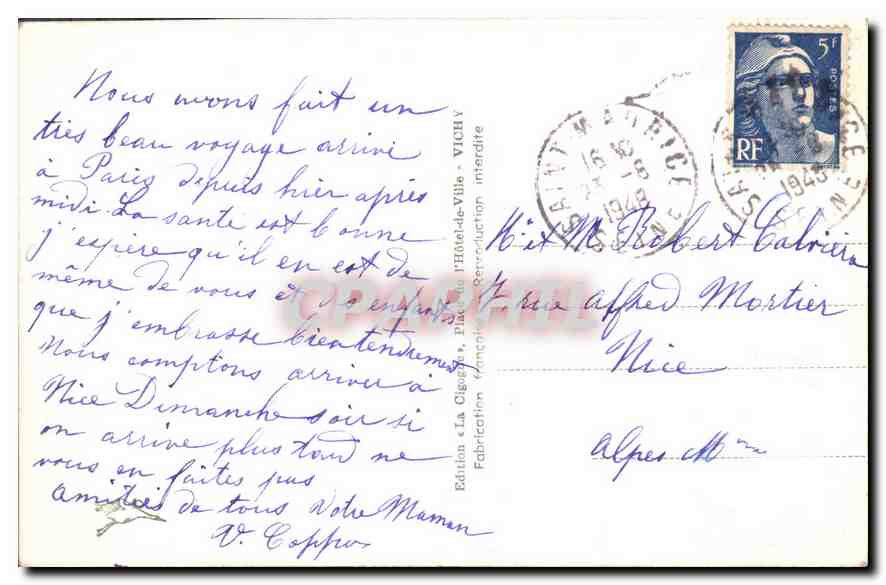 Nous avons fait un
très beau voyage arrivé
à Paris depuis hier après
midi La santé est bonne
j'espère qu'il en est de
même de vous et des enfants
que j'embrasse bien tendrement
nous comptons arriver à
Nice Dimanche soir si
on arrive plus tard ne
vous en faites pas
amitiés de tous Votre Maman
V. Coppo
Edition « La Cigogne », Place de l'Hôtel-de-Ville - VICHY
Fabrication française - Reproduction interdite
5f
POSTES
RF
SAINT MAURICE
16 8
1948
SEINE
SAINT
1948
Mr et Me Robert Calviera
7 rue Alfred Mortier
Nice
Alpes Mmes
CPAPHIL